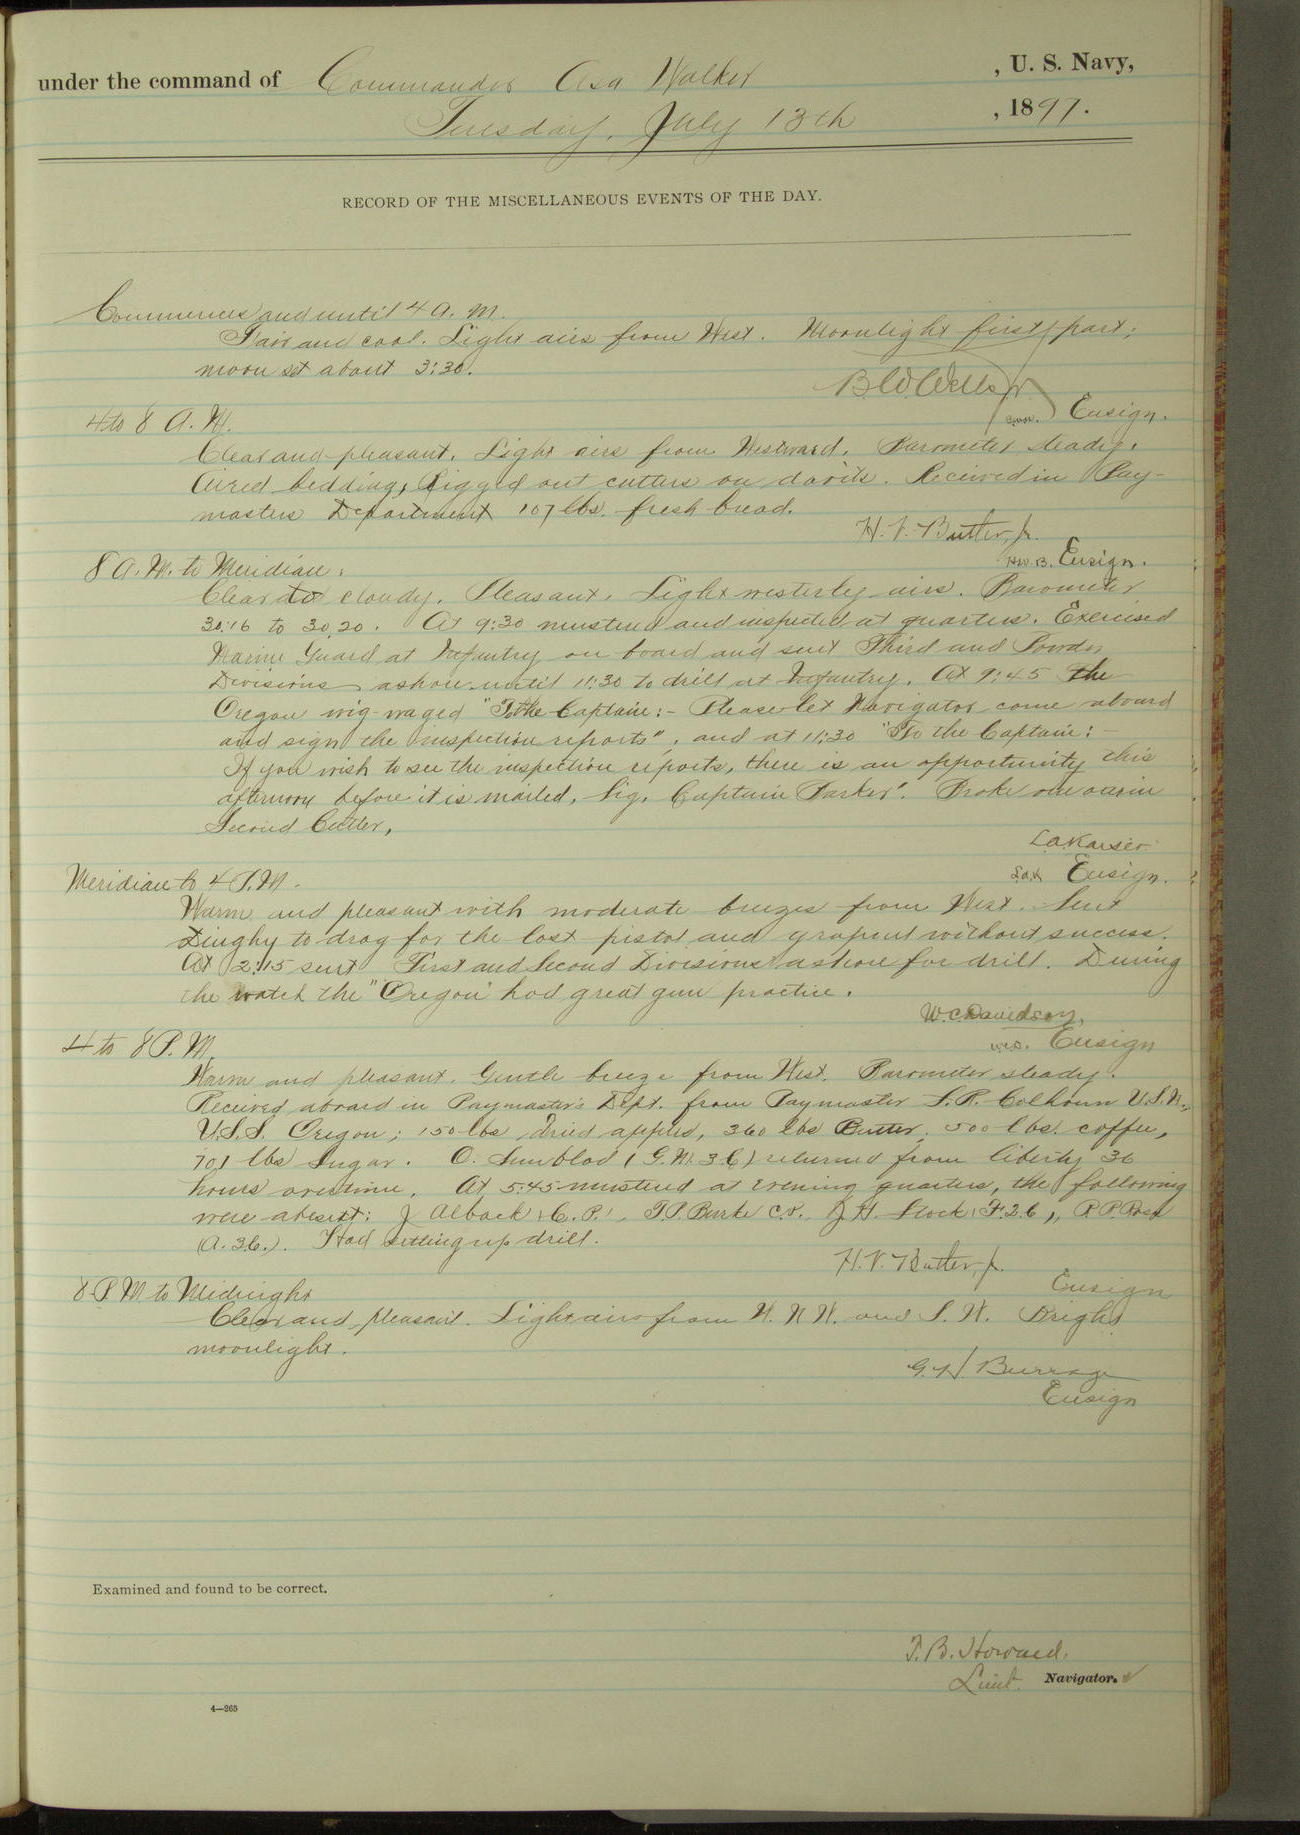 under the command of Commander Asa Walker, U. S. Navy,
Tuesday, July 13th, 1897.
RECORD OF THE MISCELLANEOUS EVENTS OF THE DAY.
Commences and until 4 A. M.
Fair and cool. Light airs from West. Moonlight first part;
moon set about 3:30.
B.W. Wells Jr
Ensign.
4 to 8 A. M.
Clear and pleasant. Light airs from Westward. Barometer steady.
Aired bedding, Rigged out cutters on davits. Received in Pay-
masters Department 107 lbs. fresh bread.
H. V. Butler, Jr.
Ensign.
8 A. M. to Meridian.
Clear to cloudy. Pleasant. Light westerly airs. Barometer
30.16 to 30.20. At 9:30 mustered and inspected at quarters. Exercised
Marine Guard at Infantry on board and sent Third and Powder
Divisions ashore until 11:30 to drill at Infantry. At 9:45 the
Oregon wig-waged "To the Captain:- Please let Navigator come aboard
and sign the inspection reports", and at 11:30 "To the Captain:-
If you wish to see the inspection reports, there is an opportunity this
afternoon before it is mailed. Sig. Captain Barker". Broke one oar in
Second Cutter.
L.A. Kaiser
L.a.K Ensign.
Meridian to 4 P.M.
Warm and pleasant with moderate breezes from West. Sent
Dinghy to drag for the lost pistol and grapnel without success.
At 2:15 sent First and Second Divisions ashore for drill. During
the watch the "Oregon" had great gun practice.
W.C. Davidson,
Ensign
4 to 8 P. M.
Warm and pleasant. Gentle breeze from West. Barometer steady.
Received aboard in Paymaster's Dept. from Paymaster S.R. Colhoun U.S.N.,
U.S.S. Oregon; 150 lbs dried apples, 360 lbs Butter, 500 lbs. coffee,
701 lbs Sugar. O. Sunblad (G.M. 3C) returned from liberty 36
hours overtime. At 5:45 mustered at evening quarters, the following
were absent: J Alback (C.P.), T.P. Burke C.P. J H. Stock (F. 2.C), R P. Post
(A. 3C.). Had setting up drill.
H. V. Butler, Jr.
Ensign
8 P M. to Midnight
Clear and pleasant. Light airs from W. N W. and S. W. Bright
moonlight.
G. H Burrage
Ensign
Examined and found to be correct.
T. B. Howard,
Lieut. Navigator.
4—265